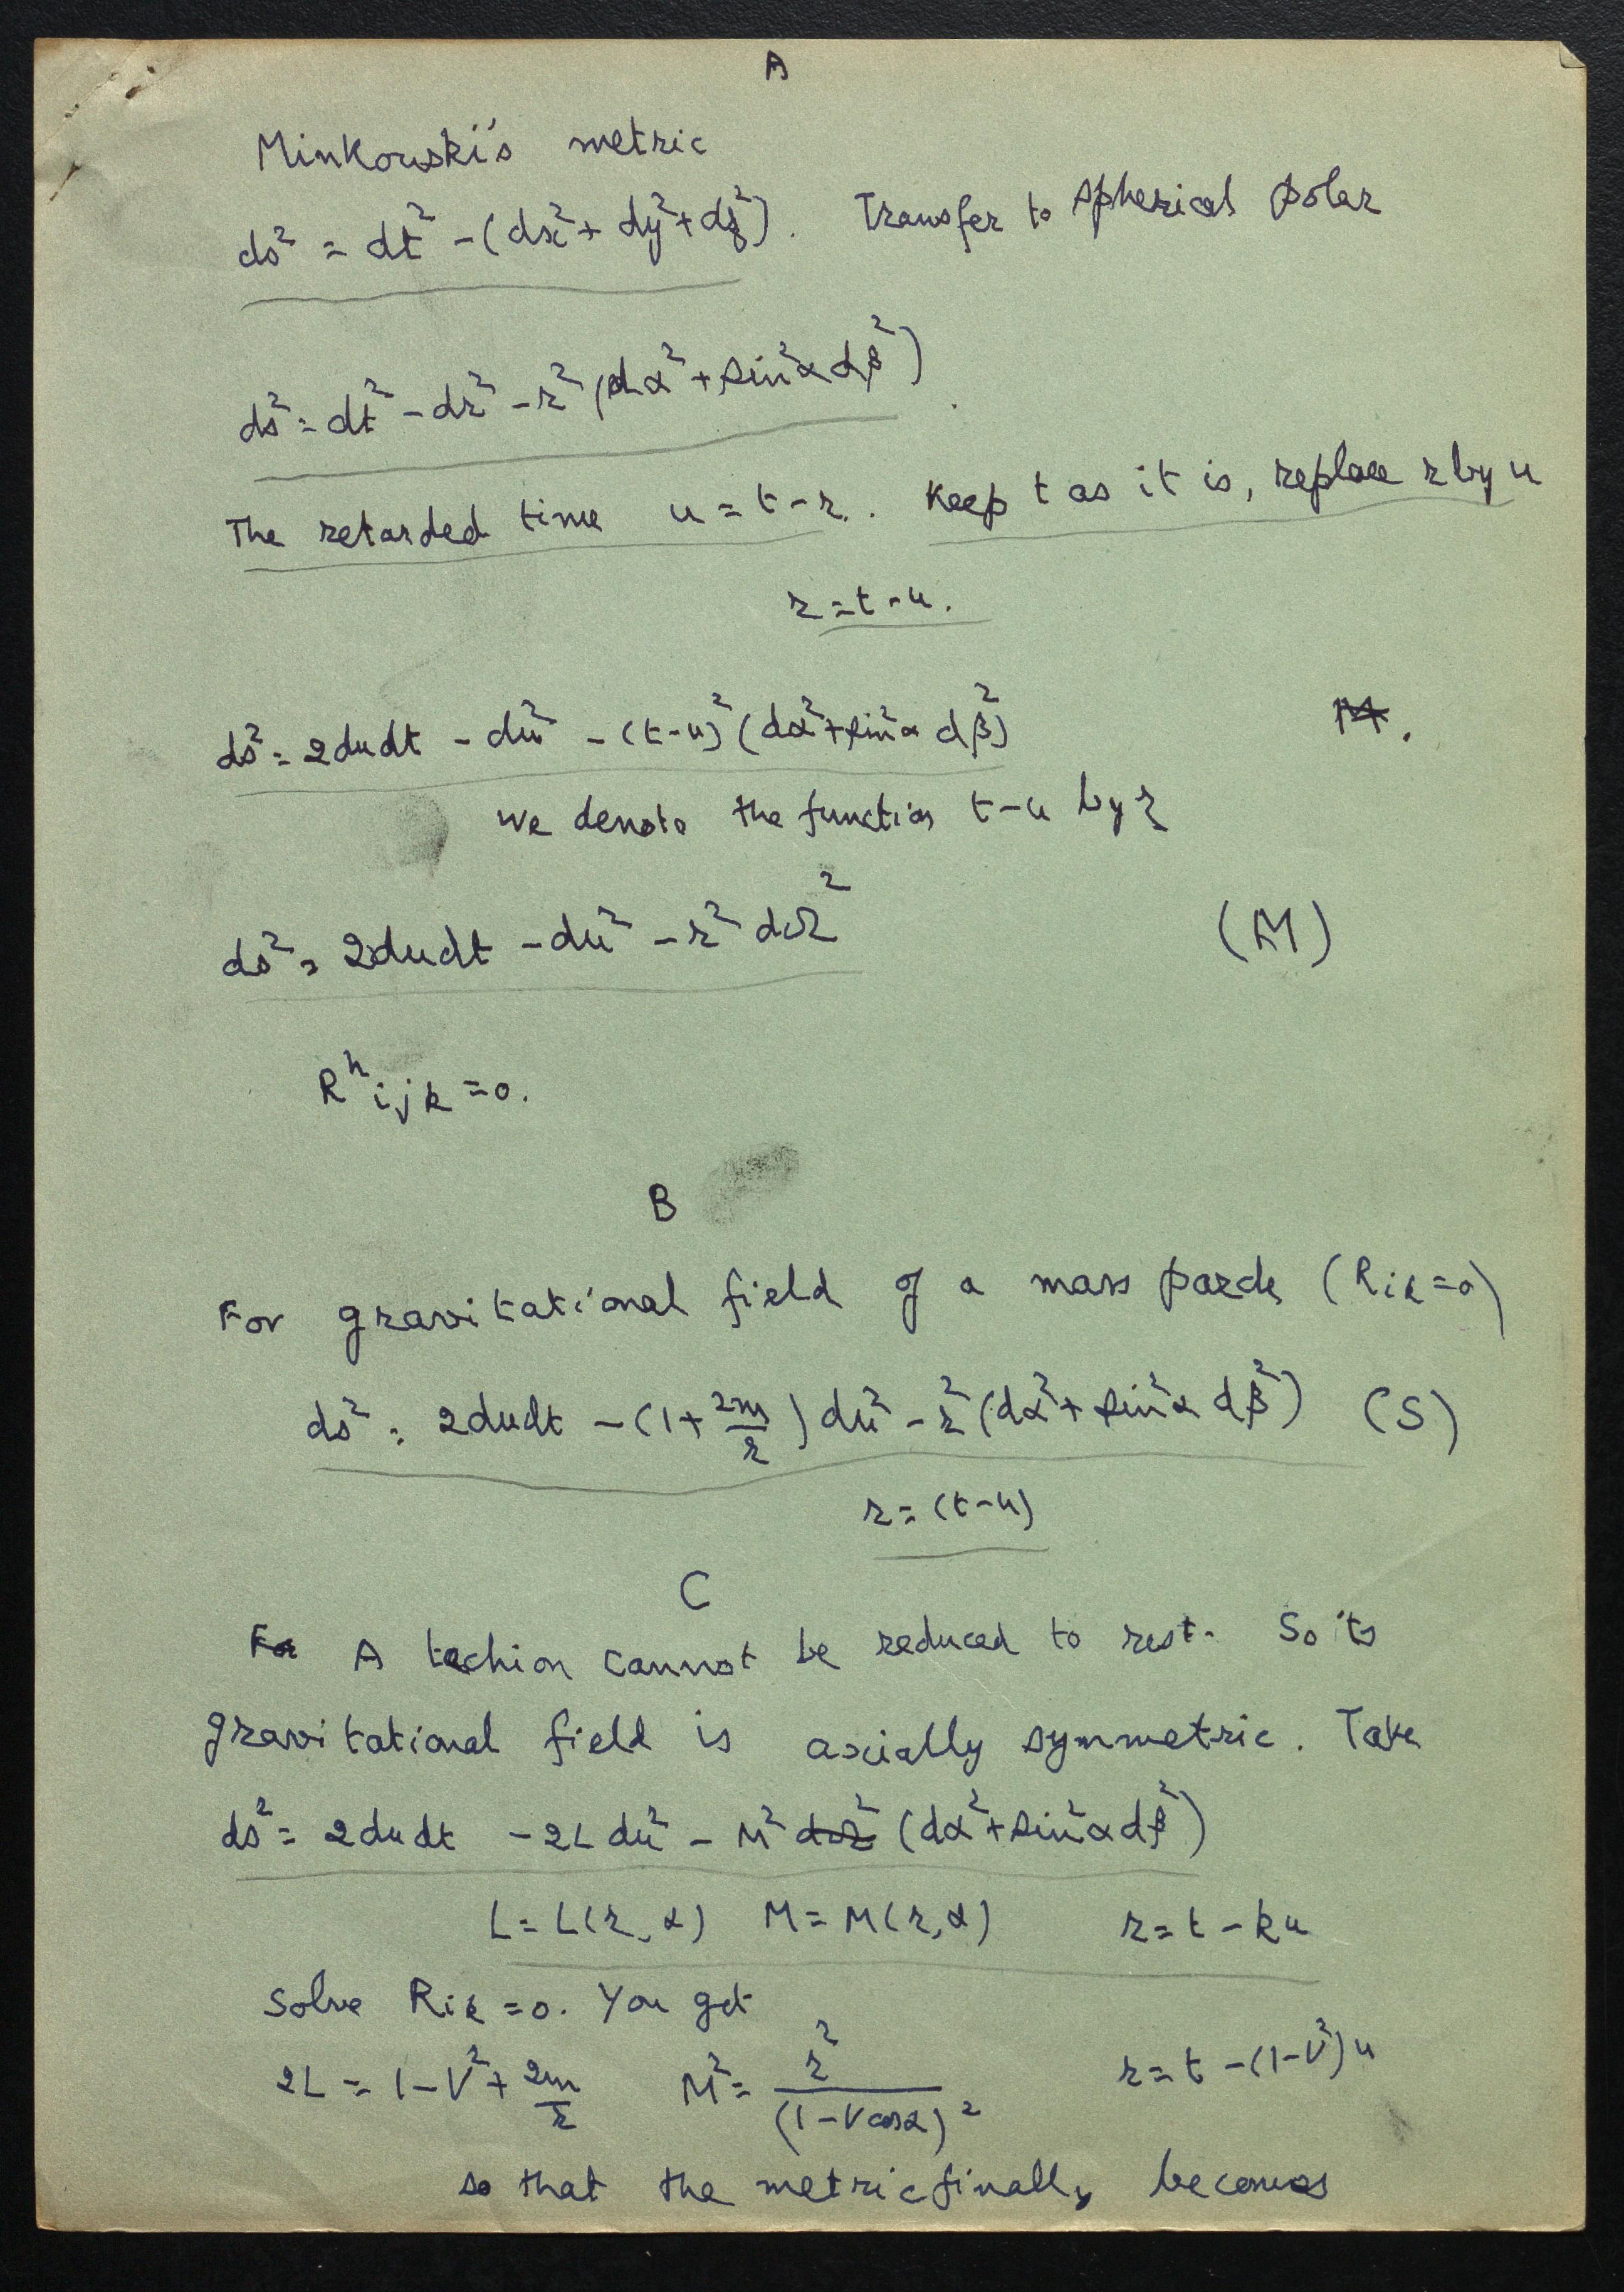 A
Minkowski's metric
ds² = dt² - (dx² + dy² + dz²). Transfer to spherical polar
ds² = dt² - dr² - r² (dα² + sin²α dβ²)
The retarded time u = t - r. Keep t as it is, replace r by u
r = t - u.
ds² = 2dudt - du² - (t-u)² (dα² + sin²α dβ²) M.
we denote the function t - u by r
ds² = 2dudt - du² - r² dΩ² (M)
Rʰijk = 0.
B
For gravitational field of a mass (Rik = 0)
ds² = 2dudt - (1 + 2m/r) du² - r² (dα² + sin²α dβ²) (S)
r = (t-u)
C
For A tachion cannot be reduced to rest. So its
gravitational field is axially symmetric. Take
ds² = 2dudt - 2L du² - M² dΩ² (dα² + sin²α dβ²)
L = L(r, α) M = M(r, α) r = t - ku
Solve Rik = 0. You get
2L = 1 - V² + 2m/r M² = r²/(1 - V cosα)² r = t - (1-V²)u
so that the metric finally becomes